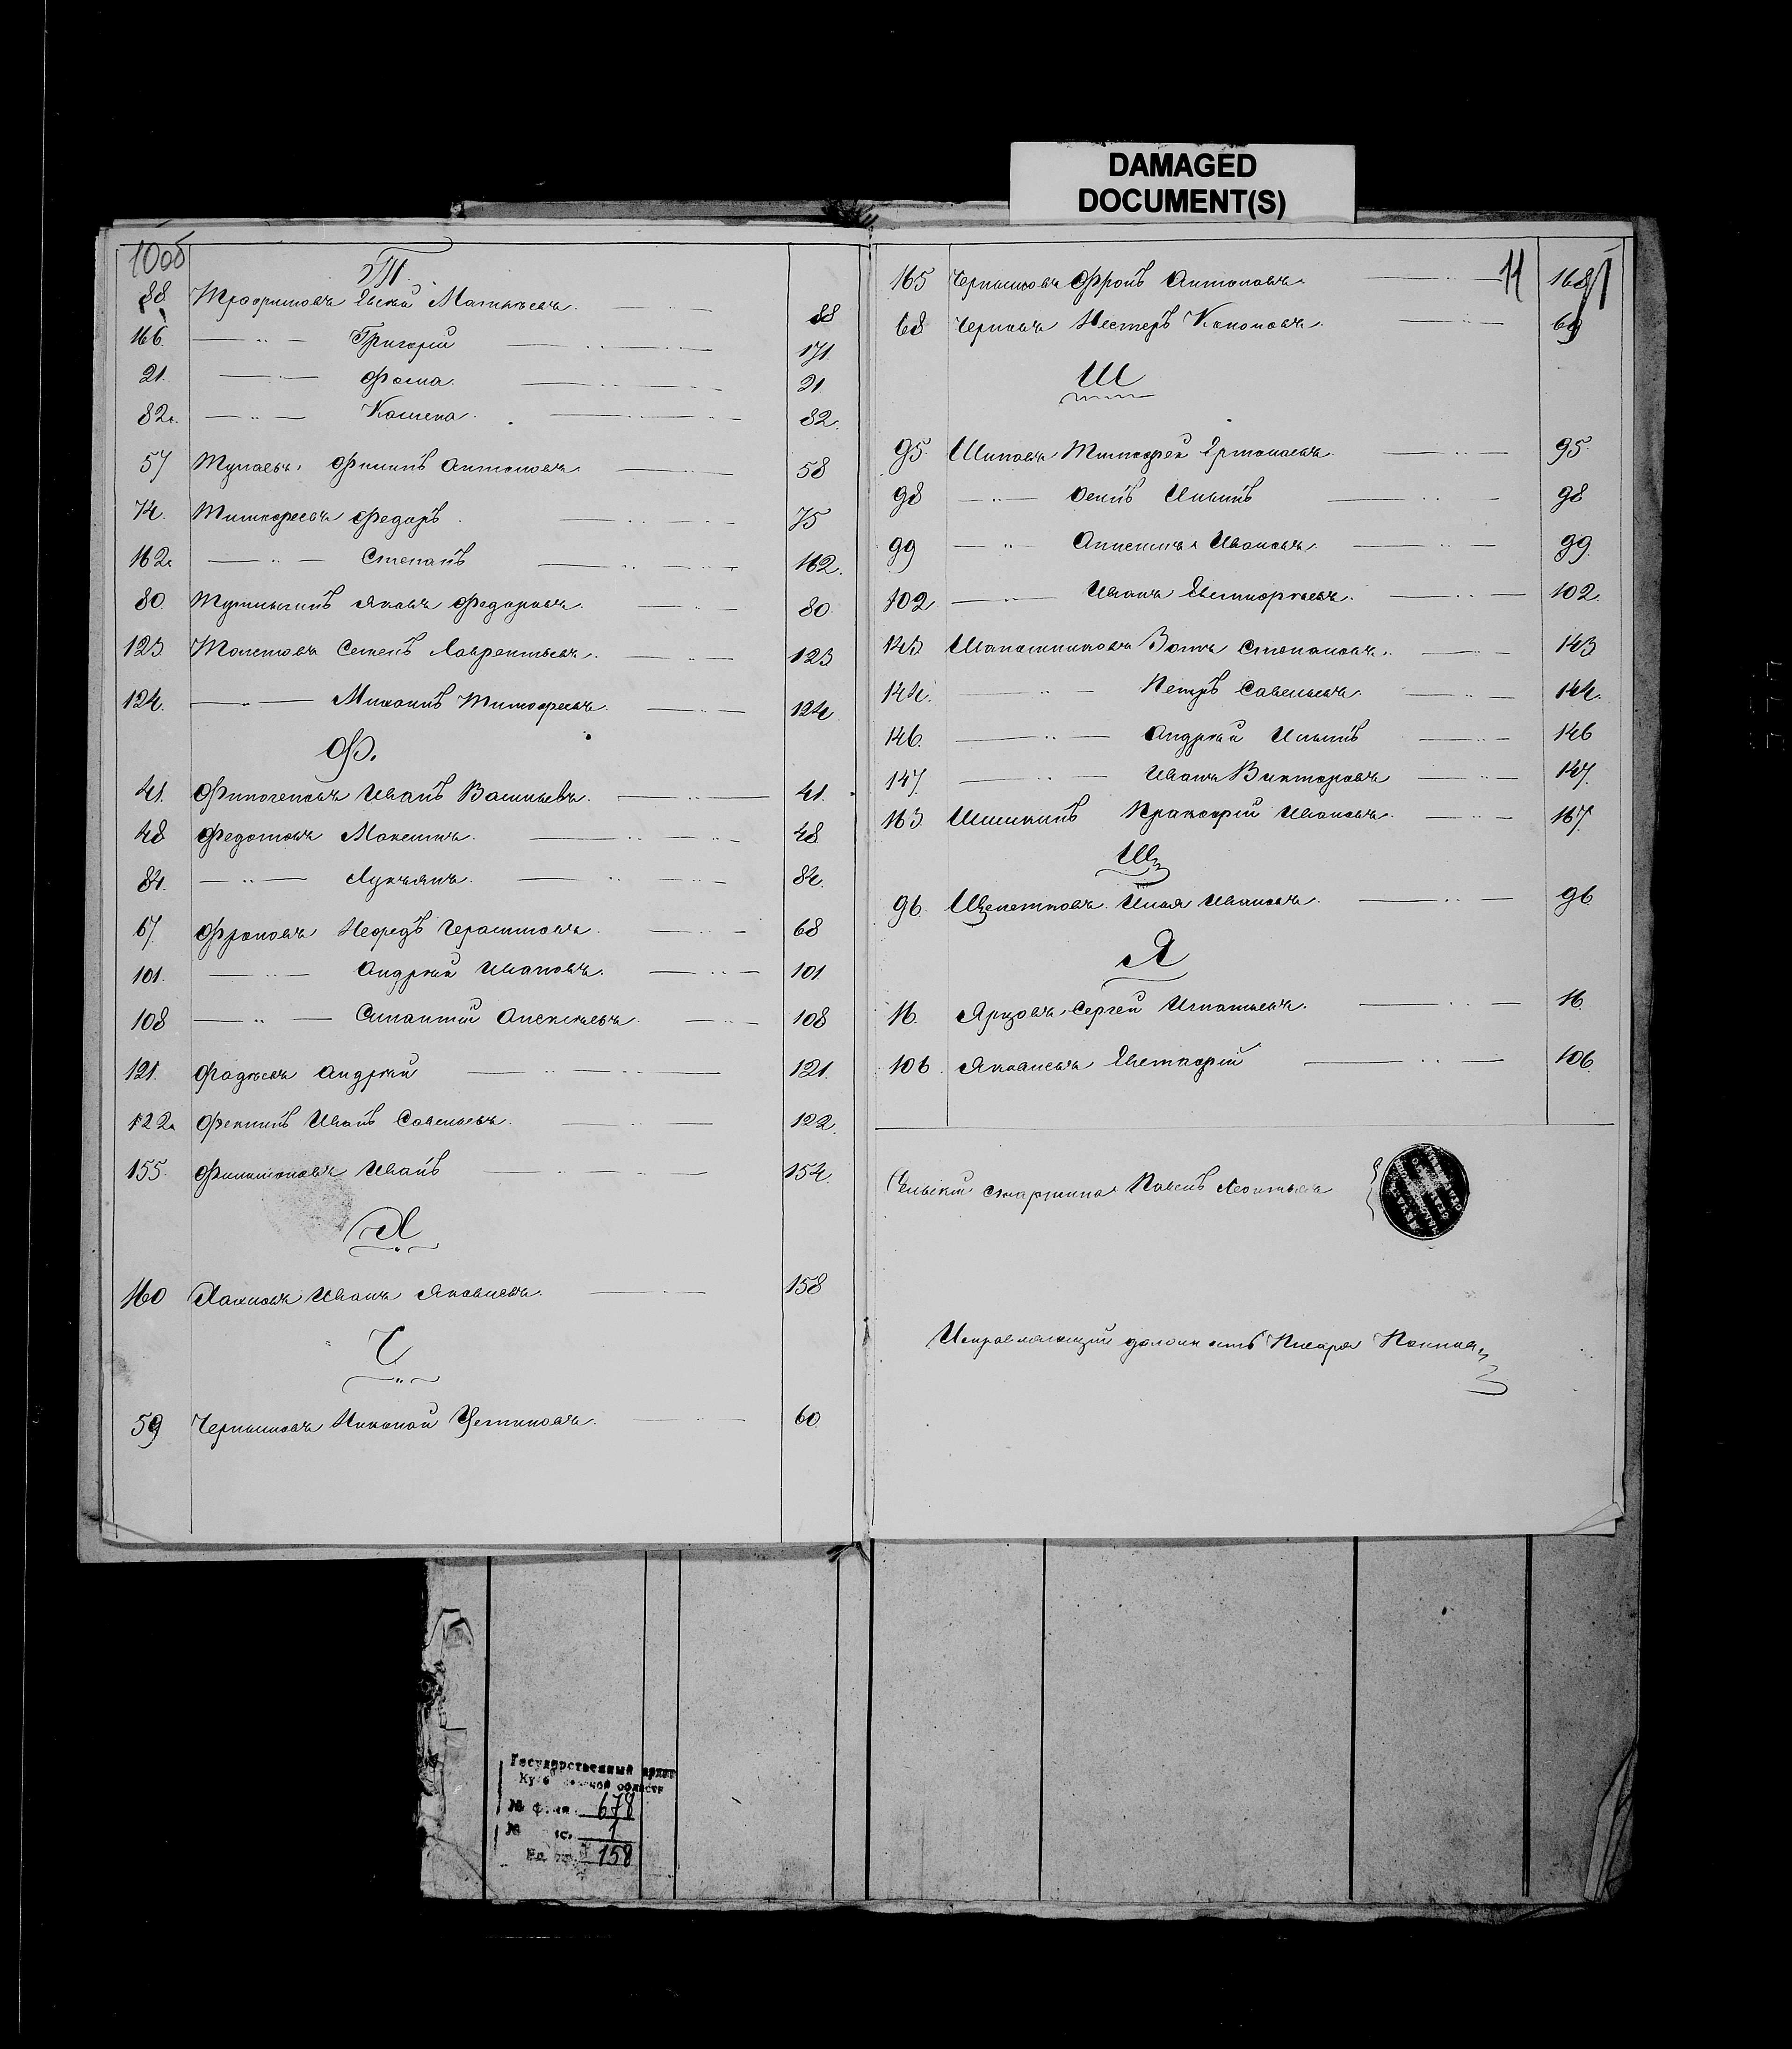 DAMAGED
DOCUMENT(S)
10об
Т.
88 Трофимовъ Евсей Матвѣевъ. 88
166. Григорій 171.
21. Фома. 21
82. 82.
57 Тупаевъ Филипъ Антоновъ 58
74. Тимофеевъ Федоръ 75
162. Степанъ 162.
80. Яковъ Федоровъ. 80
123. Толстовъ Семенъ Лаврентьевъ. 123
124. Михаилъ Тимофеевъ. 124
Ф.
41. Финогеновъ Иванъ Васильевъ. 41.
48 Федотовъ Максимъ. 48
84. Лукьянъ. 84.
67. Фроловъ Нефедъ Герасимовъ. 68
101. Андрей Ивановъ. 101
108 Силантій Алексѣевъ. 108
121. Фадѣевъ Андрей 121.
122. Иванъ Савельевъ. 122.
155. Филимоновъ Иванъ 154
Х
160 Иванъ Яковлевъ. 158
Ч
59 Чернышовъ Николай Устиновъ. 60
11
165 Чернышовъ Фролъ Антоновъ. 168
68 Черновъ Нестеръ Кононовъ. 69
Ш
95. Шиповъ Тимофей Ермолаевъ. 95.
98 Осипъ Ильинъ 98
99 Ивановъ. 99
102 Иванъ Евстифѣевъ. 102.
143 Шапошниковъ Степановъ. 143
144. Петръ Савельевъ. 144.
146. Андрей Ильинъ 146
147. Иванъ Викторовъ 147.
163 Шишкинъ Прокофій Ивановъ. 167.
Щ
96. Щепетковъ Илья Ивановъ. 96
Я
16. Ярцовъ Сергей Игнатьевъ. 16.
106. Яковлевъ Евстафій 106
Сельскій старшина Павелъ Леонтьевъ
Исправляющій должность Писаря
Государственный архив
области
№ 678
№ 1
158